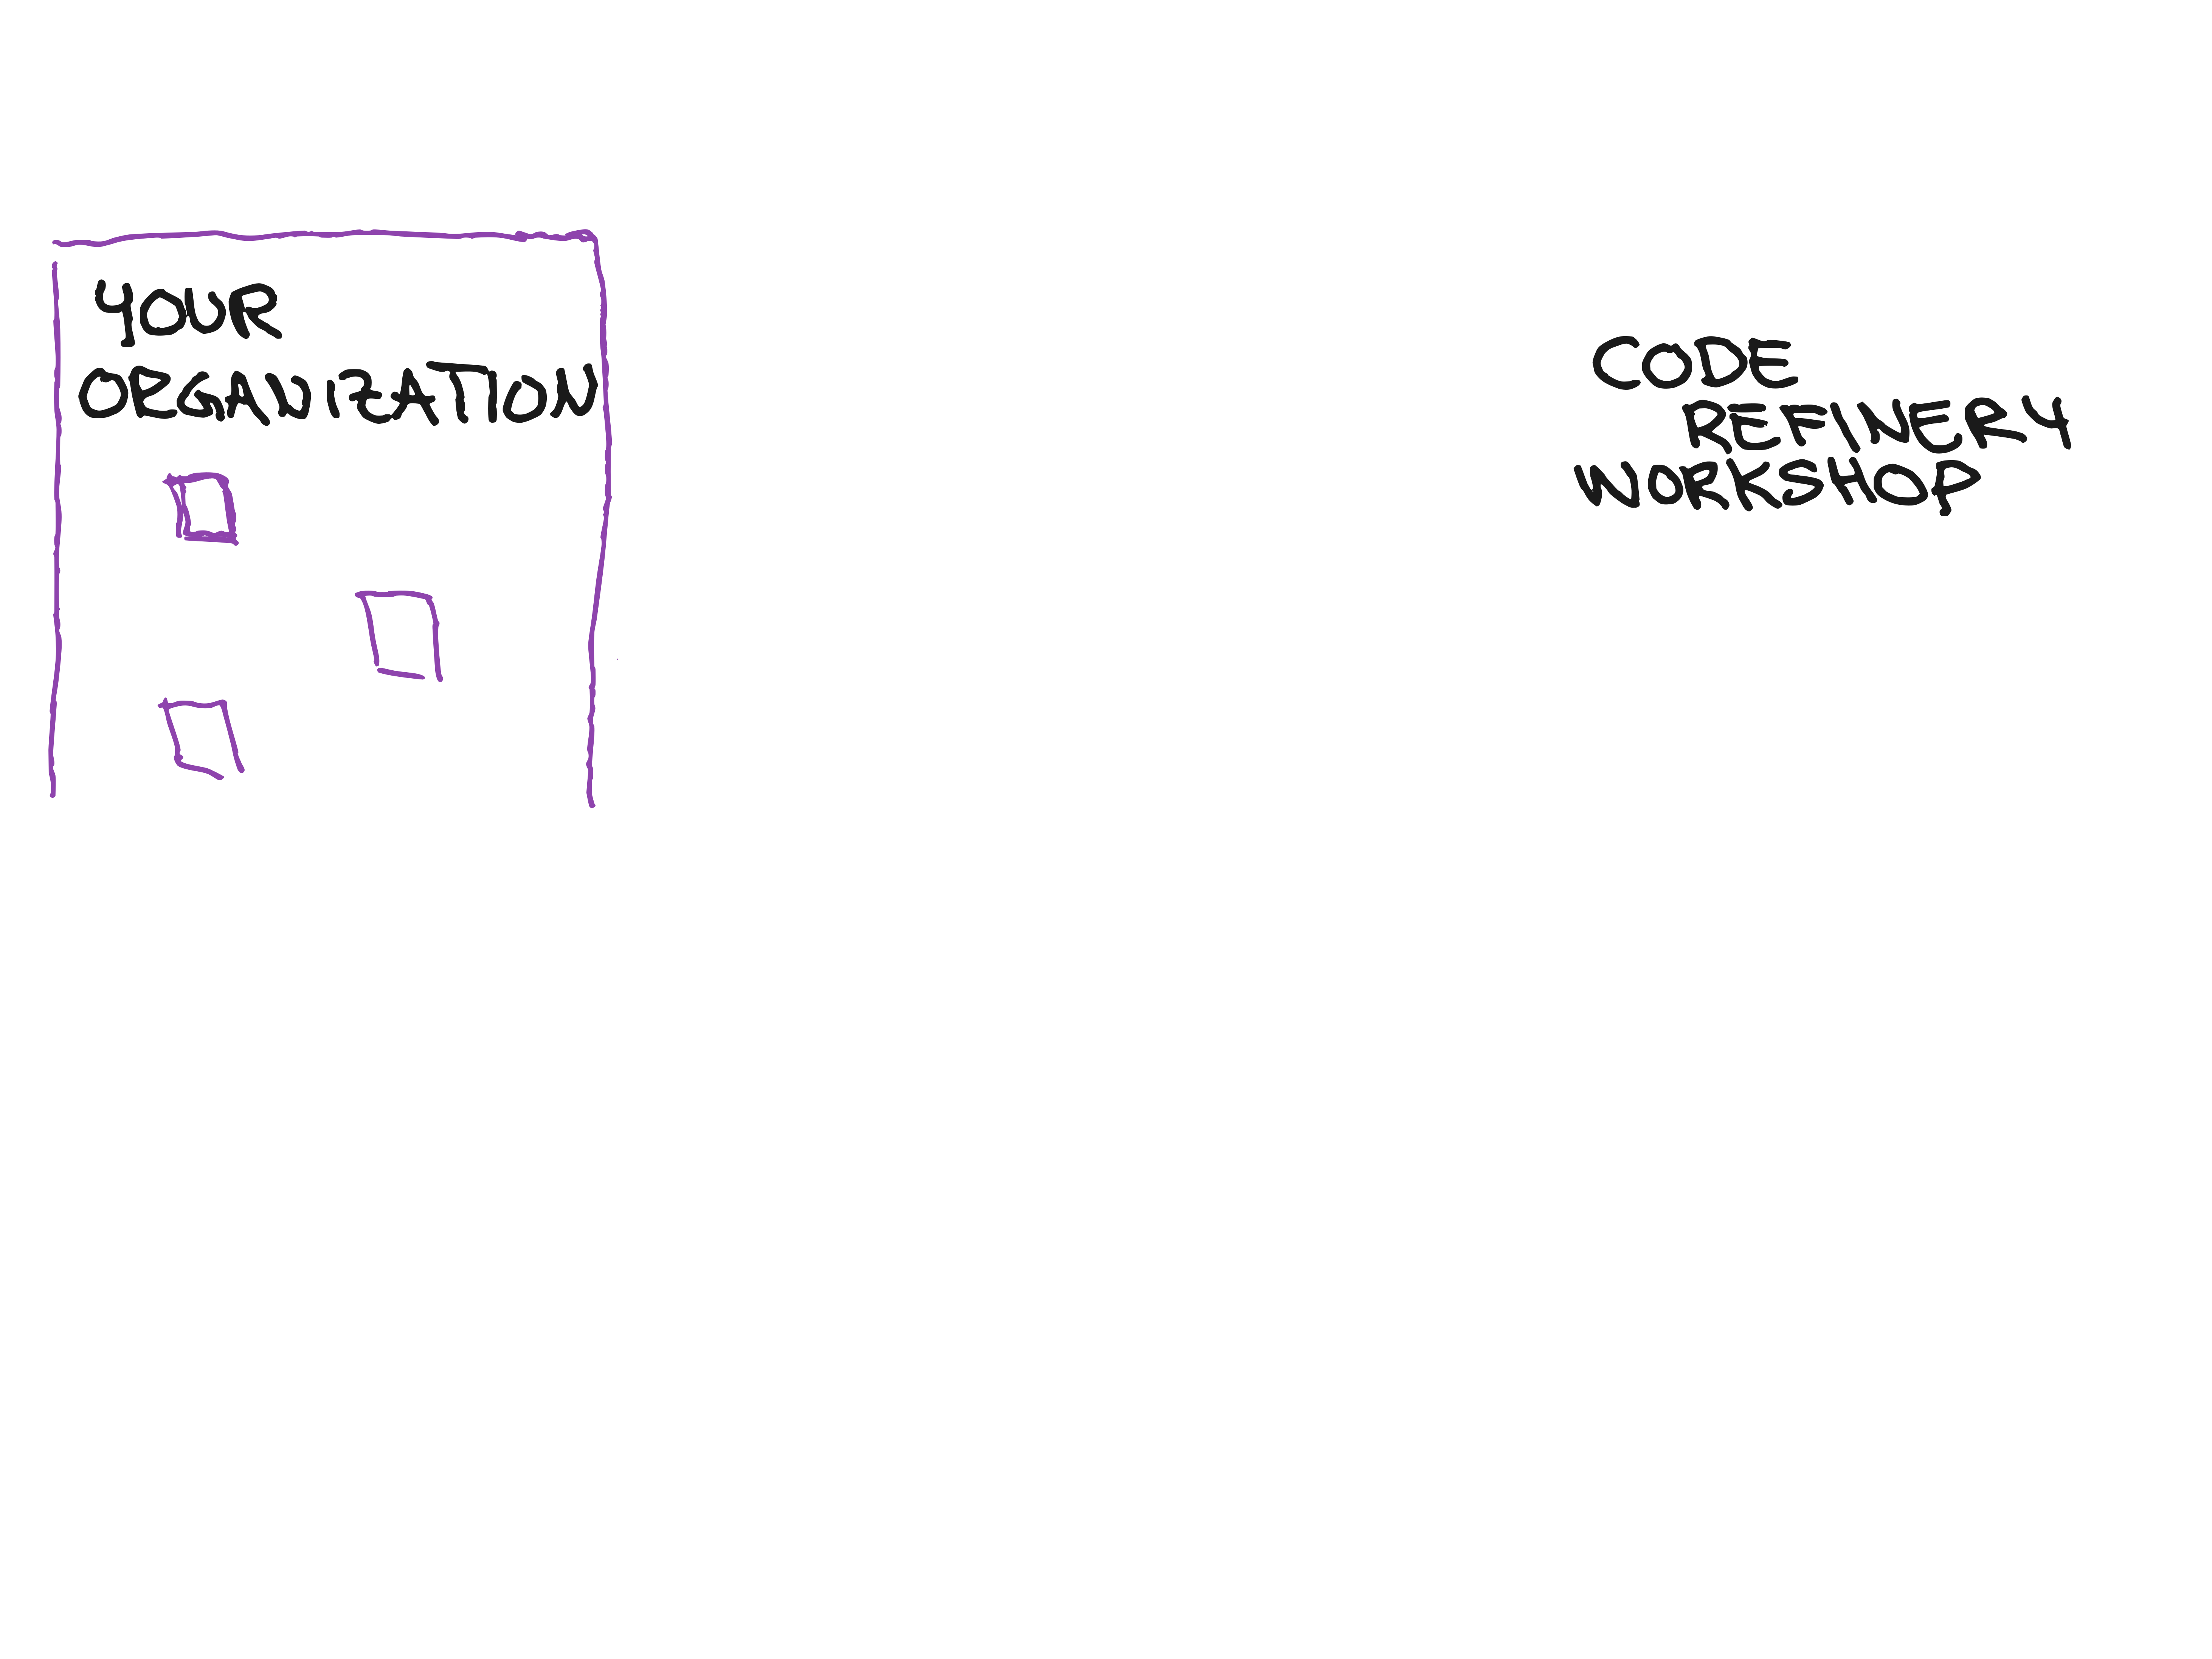 YOUR
ORGANIZATION
CODE
REFINERY
WORKSHOP